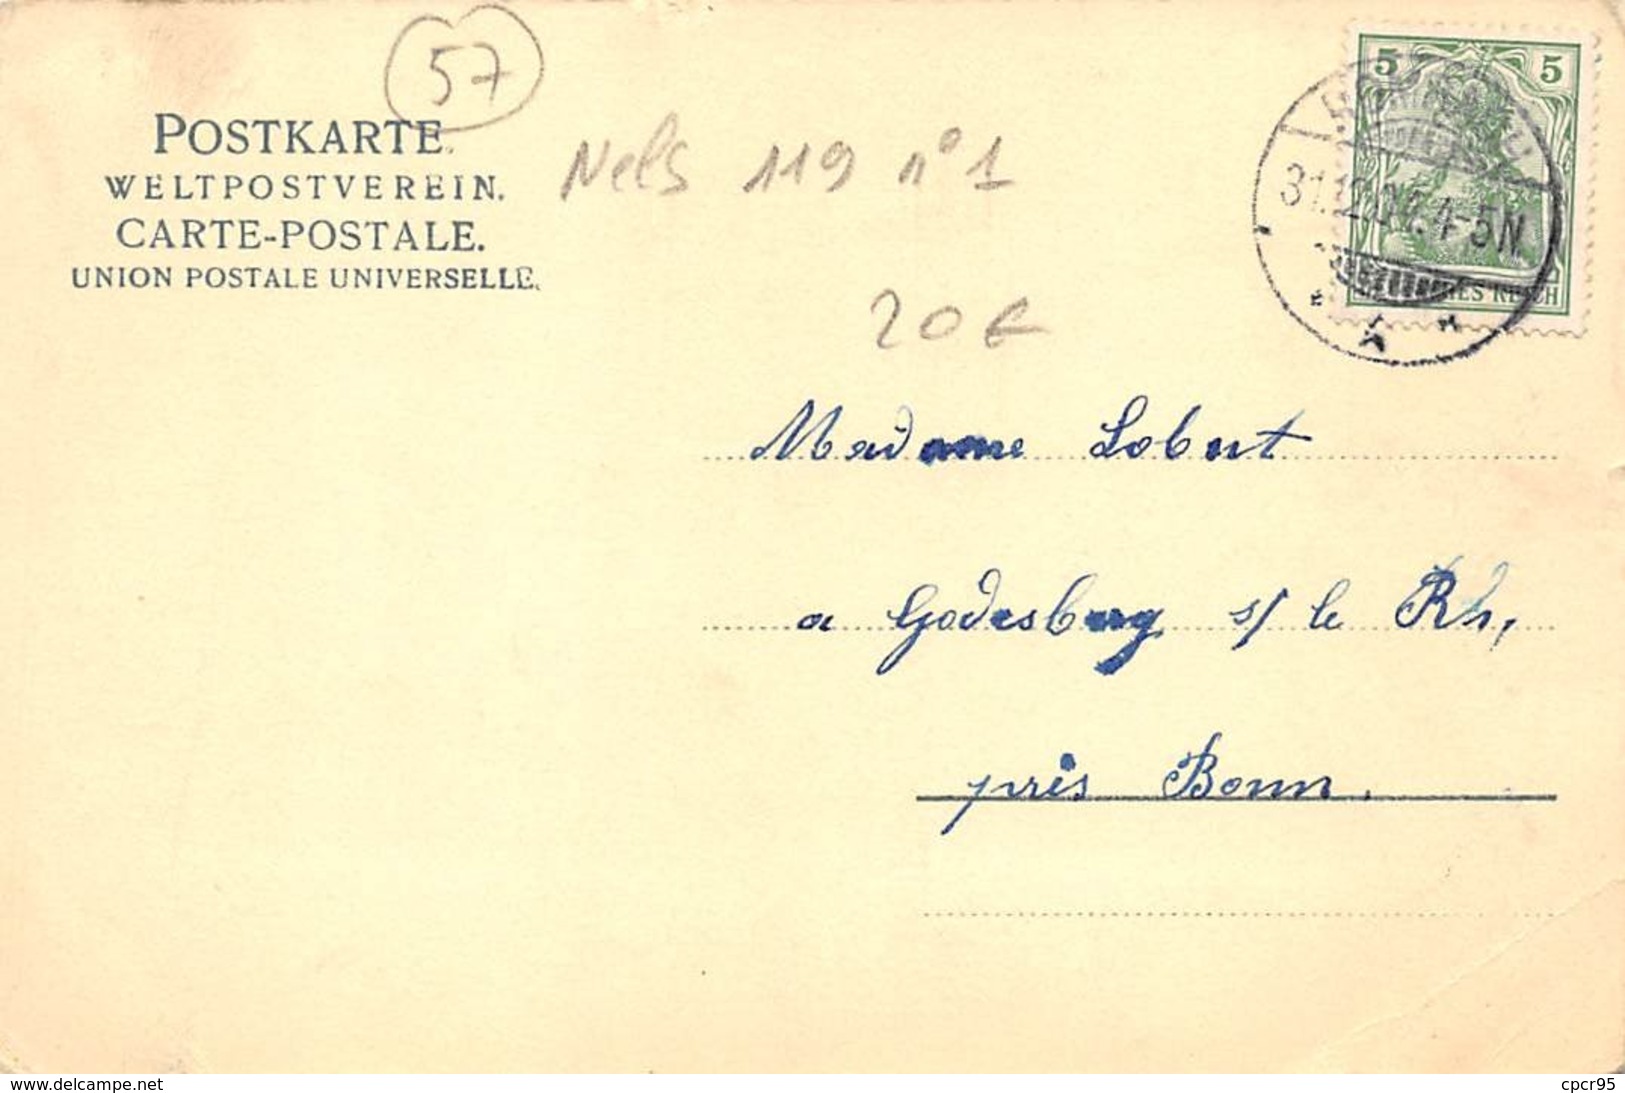 57
POSTKARTE.
WELTPOSTVEREIN.
CARTE-POSTALE.
UNION POSTALE UNIVERSELLE.
Nels 119 n° 1
20 €
5 5
31.12.04.4-5N.
REICH
Madame Lobut
a Godesberg s/ le Rh,
près Bonn.
www.delcampe.net
cpcr95